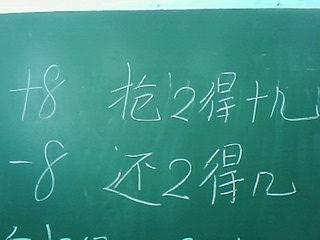 +8 抢2得十几
-8 还2得几